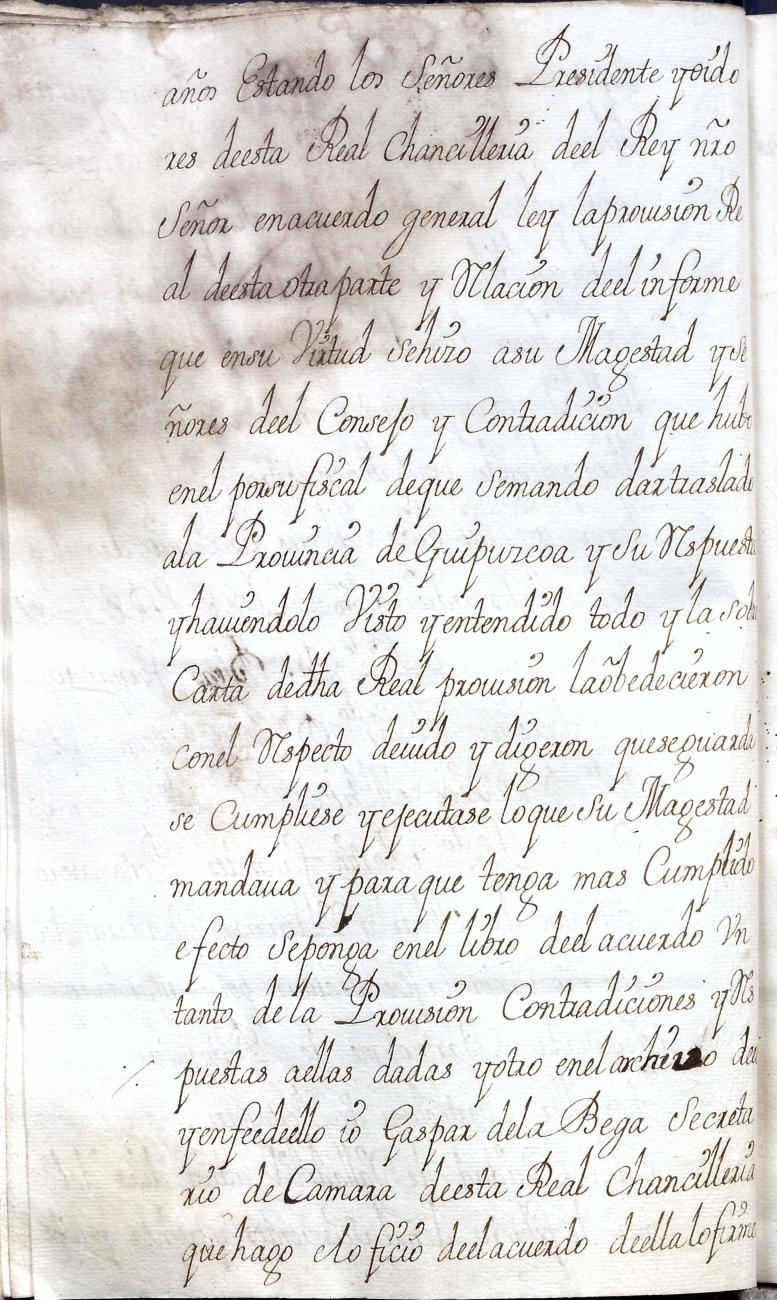 años Estando los Señores Presidente y oido
res deesta Real Chancilleria deel Rey nrõ
Señor en acuerdo general ley la provision Re
al deesta otra parte y Rlacion deel informe
que en su Virtud se hizo a su Magestad y se
ñores deel Consejo y Contradicion que hubo
en el por su fiscal de que se mando dar traslado
a la Provincia de Guipuzcoa y su Rspuesta
y haviendolo Visto y entendido todo y la sobre
Carta de dha Real provision la obedecieron
con el Rspecto devido y digeron que se guarda
se Cumpliese y ejecutase lo que su Magestad
mandava y para que tenga mas Cumplido
efecto se ponga en el libro deel acuerdo Vn
tanto de la Provision Contradiciones y Rs
puestas a ellas dadas y otro en el archivo
y en fee deello io Gaspar de la Bega Secreta
rio de Camara deesta Real Chancilleria
que hago el oficio deel acuerdo deella lo firme